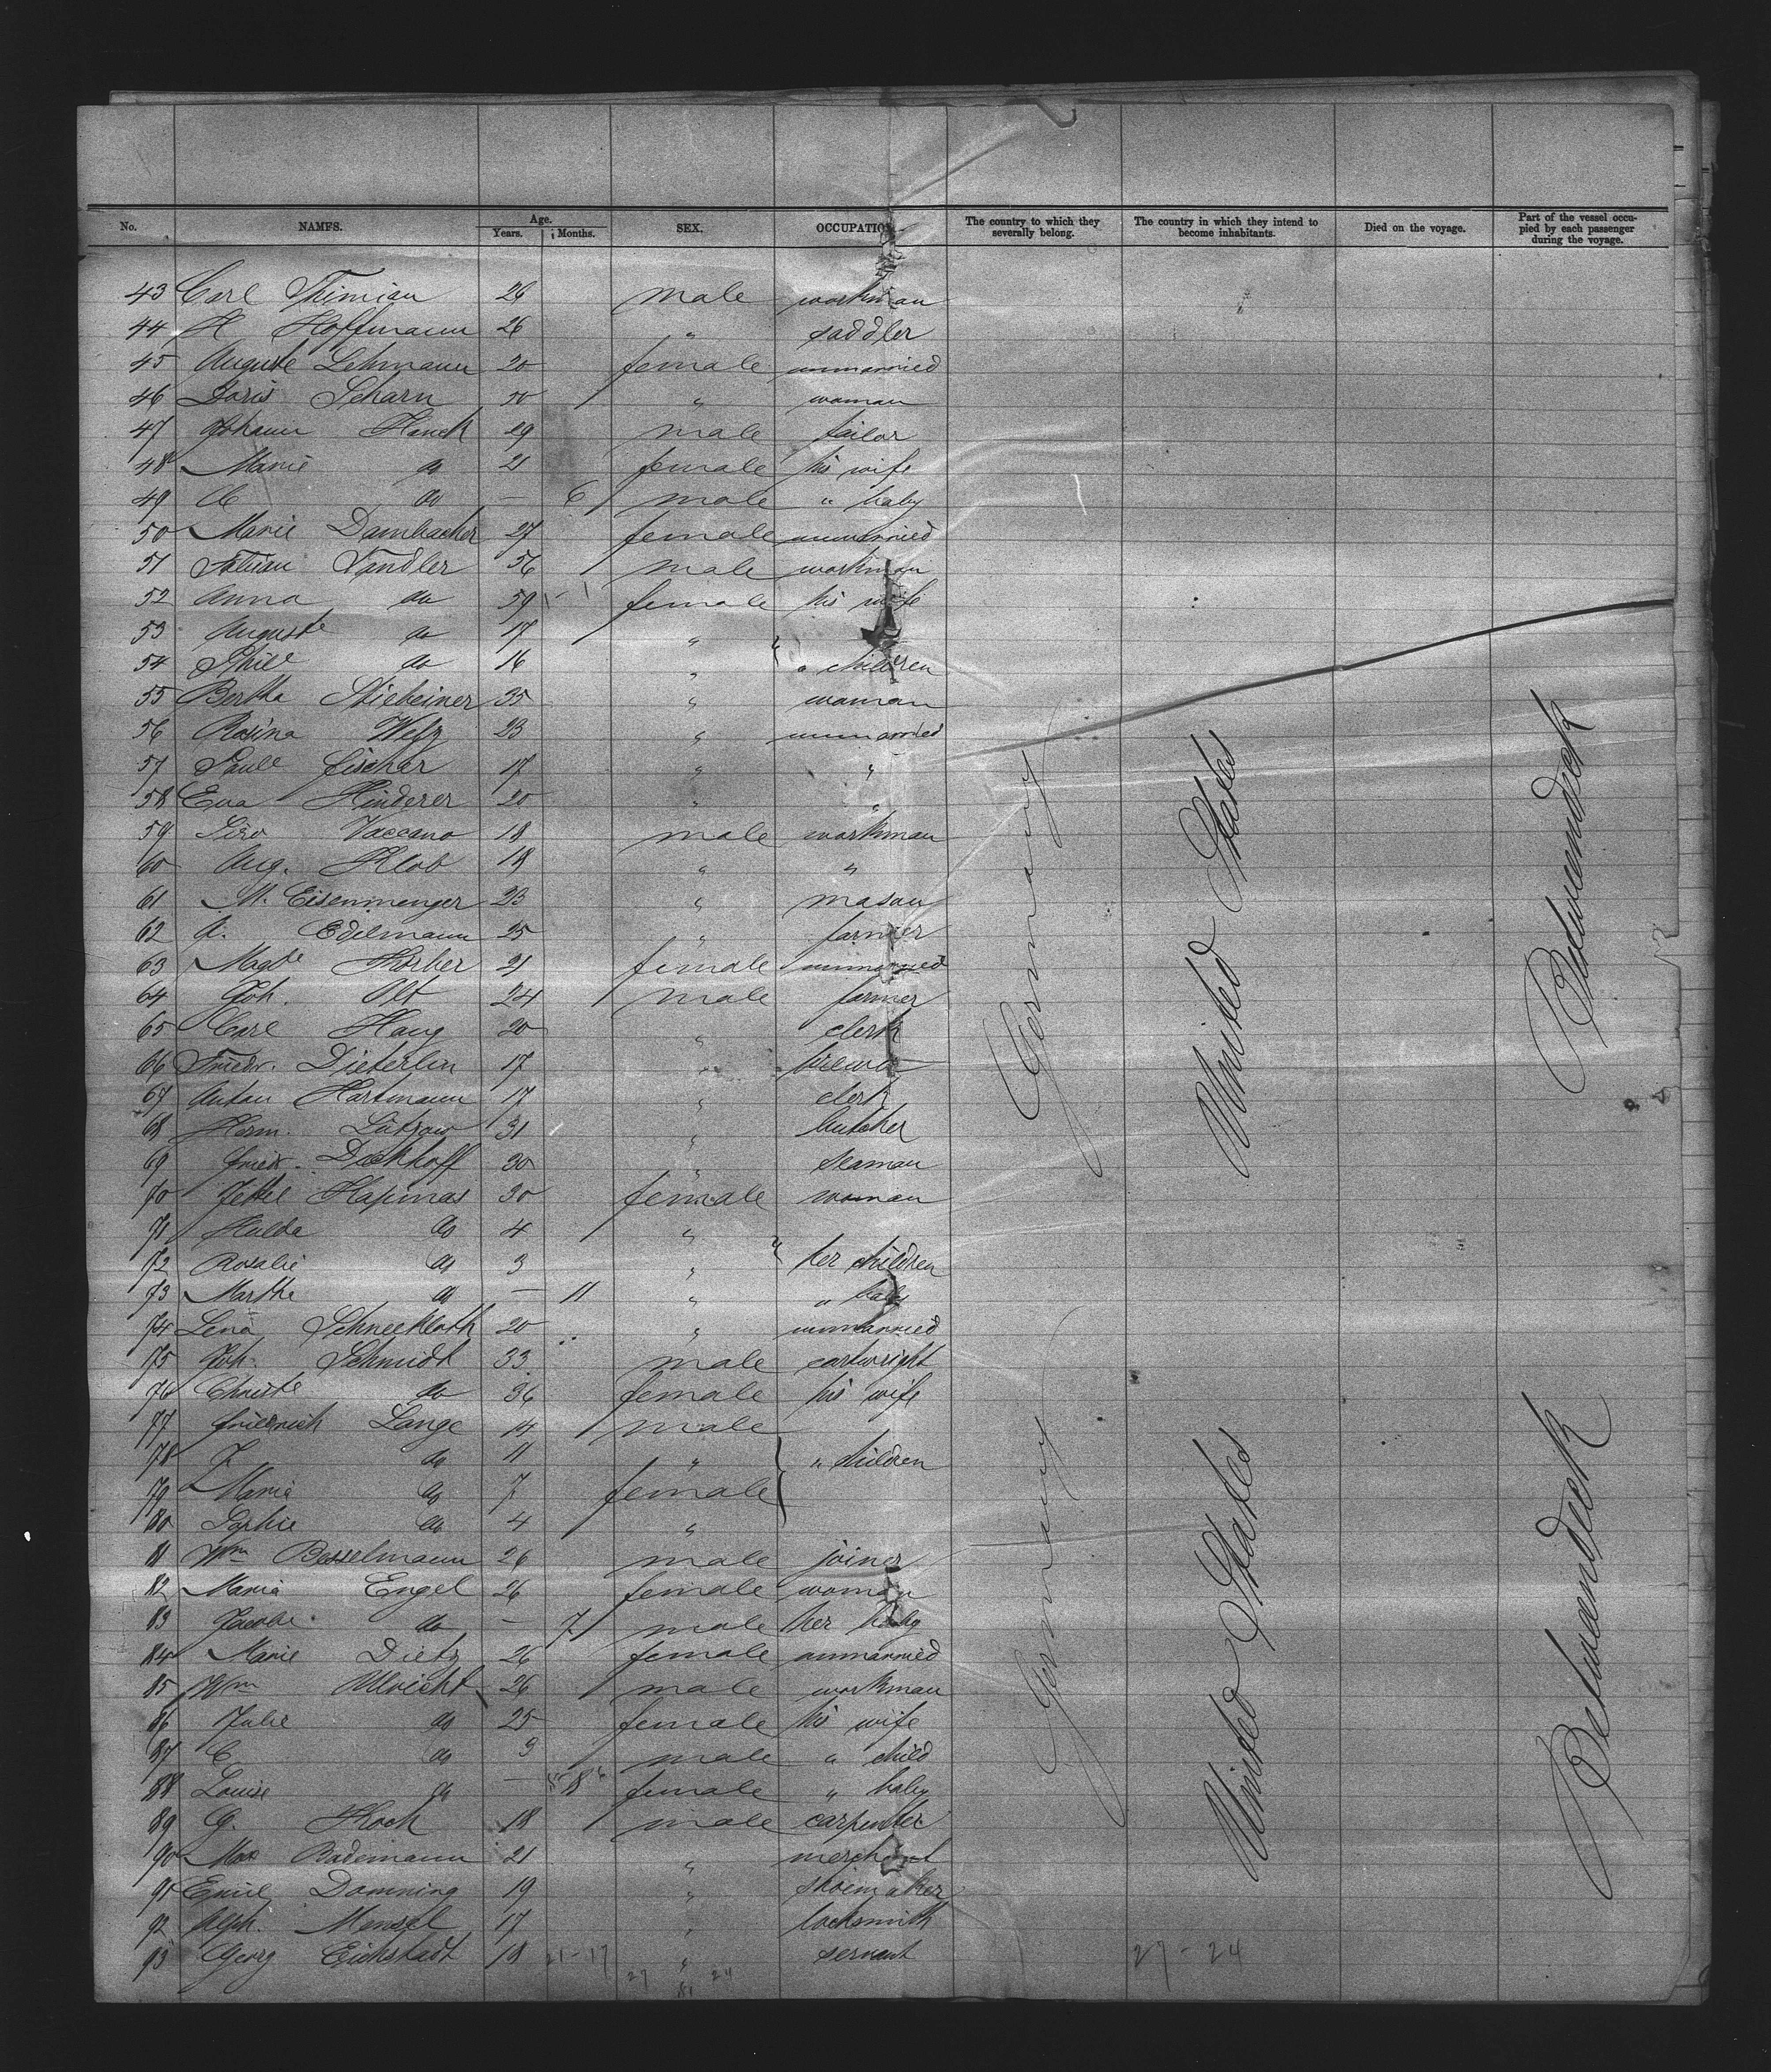 No. NAMES. Age. Years. Months. SEX. OCCUPATION The country to which they severally belong. The country in which they intend to become inhabitants. Died on the voyage. Part of the vessel occupied by each passenger during the voyage.
43 Carl Thimian 26 male workman
44 H Hoffmann 26 " saddler
45 Auguste Lehmann 20 female unmarried
46 Doris Scharn 50 " woman
47 Johann Hauck 29 male tailor
48 Marie do 21 female his wife
49 C do — 6 male " baby
50 Marie Dambacher 27 female unmarried
51 Fabian Sandler 56 male workman
52 Anna do 59 female his wife
53 Auguste do 17 "
54 Phile do 16 " " children
55 Bertha Stiebeiner 35 " woman
56 Rosina Welz 23 " unmarried
57 Paule Fischer 17 " "
58 Eva Hinderer 20 " "
59 Vaccano 18 male workman
60 Aug. Klob 18 " "
61 M. Eisenmenger 23 " mason
62 Edelmann 25 " farmer
63 Magde Körber 21 female unmarried
64 Joh. Alt 24 male farmer
65 Carl Haug 20 " clerk
66 Friedr. Dieterlin 17 " brewer
67 Anton Hartmann 17 " clerk
68 Herm. Lützow 31 " butcher
69 Friedr. Dackhoff 30 " seaman
70 Jettel Hapinas 30 female woman
71 Hulda do 4 "
72 Rosalie do 3 " her children
73 Martha do — 11 " " baby
74 Lena Schneekloth 20 " unmarried
75 Joh. Schmidt 33 male cartwright
76 Christe do 36 female his wife
77 Friedrich Lange 14 male
78 J. do 11 " " children
79 Maria do 7 female
80 Sophie do 4 "
81 Wm Besselmann 26 male joiner
82 Maria Engel 26 female woman
83 Jacobi do — 7 male her baby
84 Marie Dietz 26 female unmarried
85 Wm Ulricht 26 male workman
86 Julie do 25 female his wife
87 C do 3 male " child
88 Louise do — 8 female " baby
89 G. Koch 18 male carpenter
90 Max Bademann 21 " merchant
91 Emil Domning 19 " shoemaker
92 Alph. Mensel 17 " locksmith
93 Georg Eichstadt 18 21-17 " servant
27 24
27-24
Germany
United States
Betweendeck
Germany
United States
Betweendeck